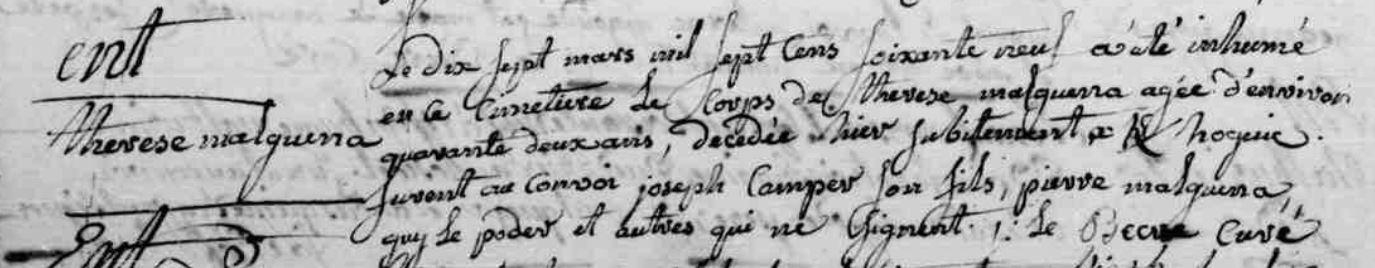 ent
therese malguerra
Le dix sept mars mil sept cens soixante neuf a été inhumé
en ce cimetiere le corps de therese malguerra agée d'environ
quarante deux ans, decedée hier subitement a hoguie.
furent au convoi joseph Camper son fils, pierre malguerra,
guy le poder et autres qui ne signent ./. Le Becre Curé
Ent